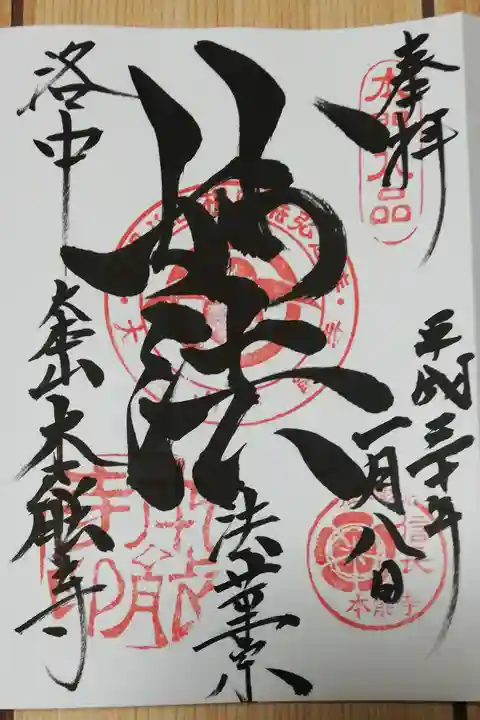 奉拝
本門八品
平成三十年
一月八日
信長
本能寺
妙法
法華宗
洛中
大本山本能寺